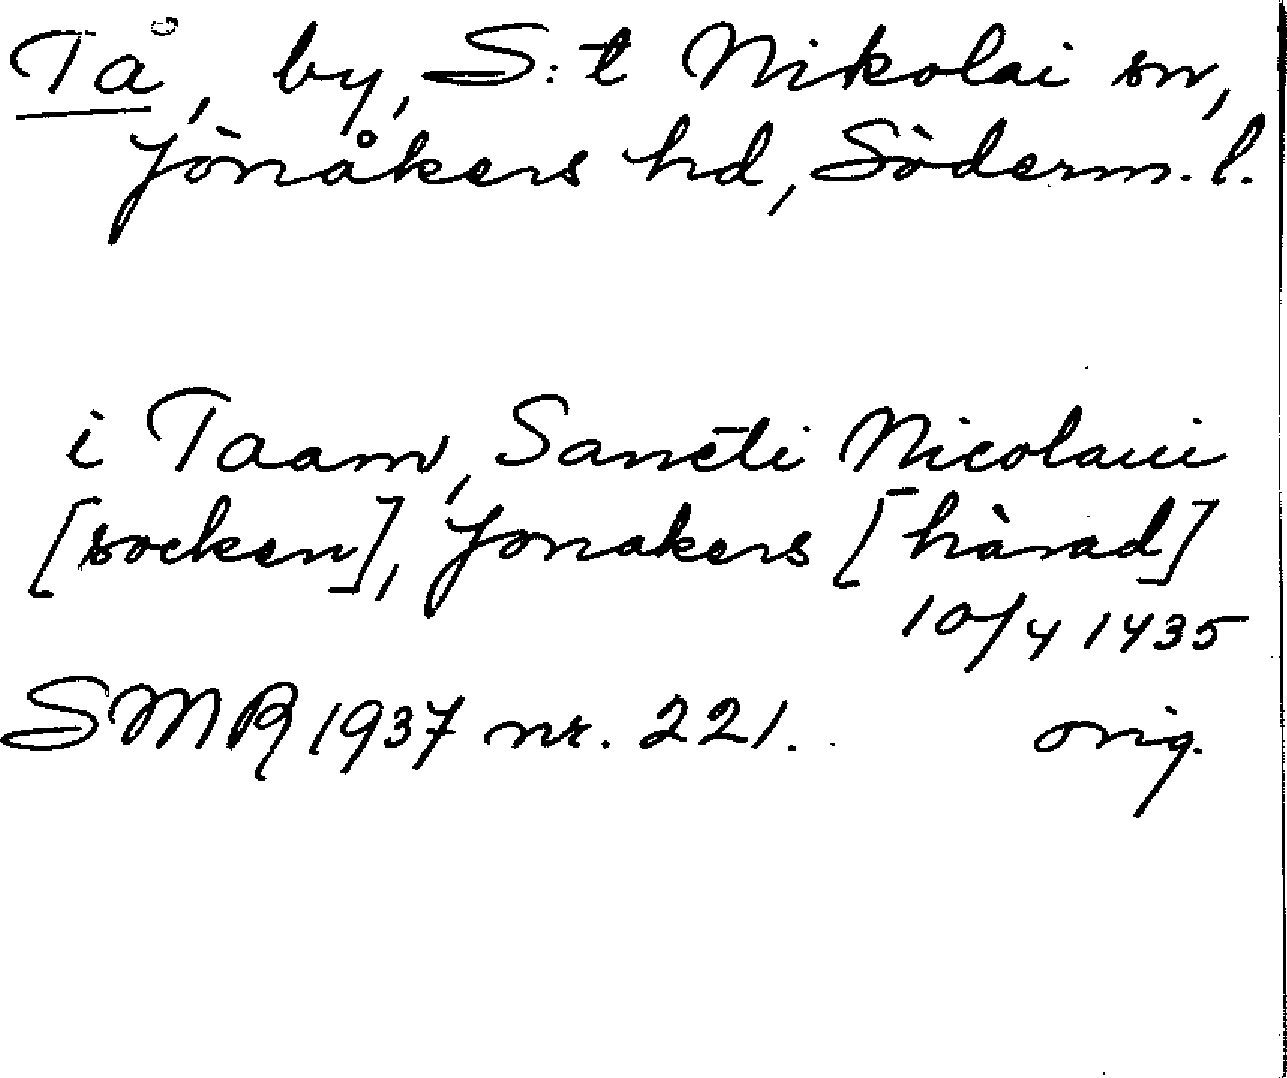 Tå, by, S:t Nikolai sn,
Jönåkers hd, Söderm. l.
i Taam, Sancti Nicolaui
[socken], Jonakers [härad]
10/4 1435
SMR 1937 nr. 221. orig.